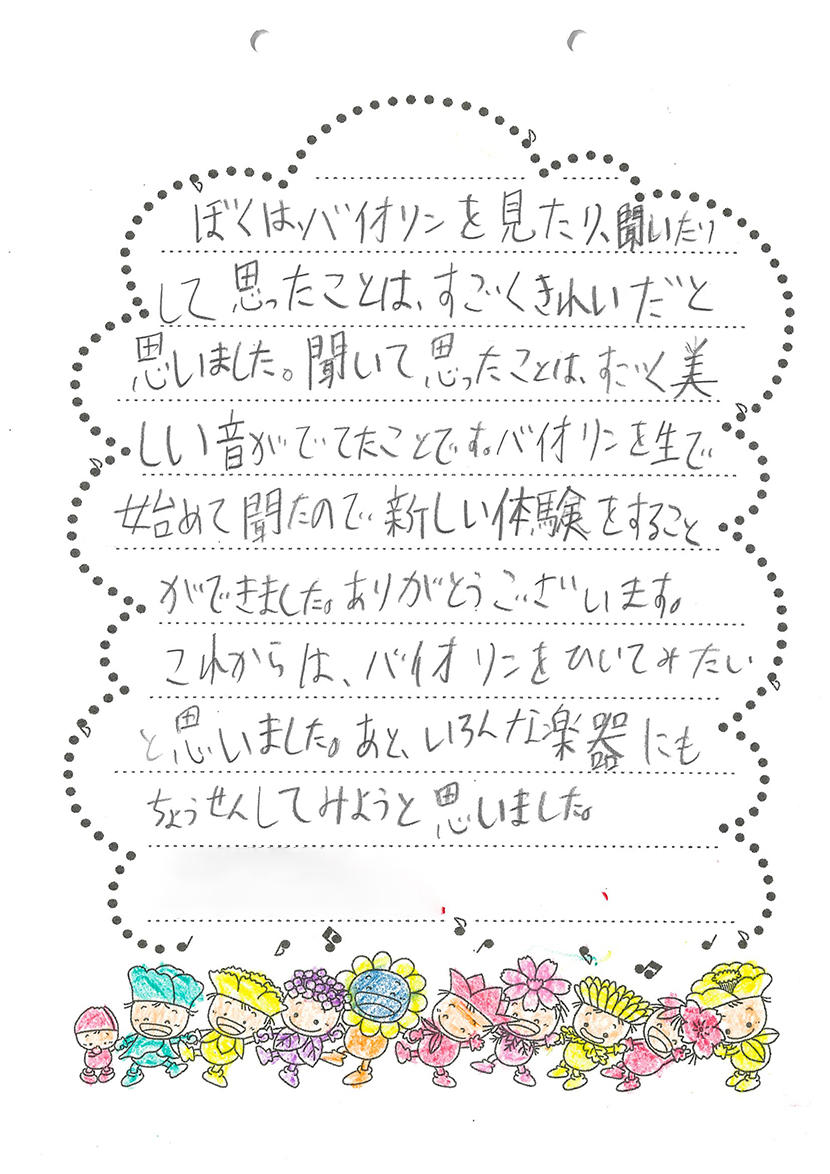 ぼくは、バイオリンを見たり、聞いたり
して思ったことは、すごくきれいだと
思いました。聞いて思ったことは、すごく美
しい音がでてたことです。バイオリンを生で
始めて聞たので新しい体験をすること
ができました。ありがとうございます。
これからは、バイオリンをひいてみたい
と思いました。あと、いろんな楽器にも
ちょうせんしてみようと思いました。